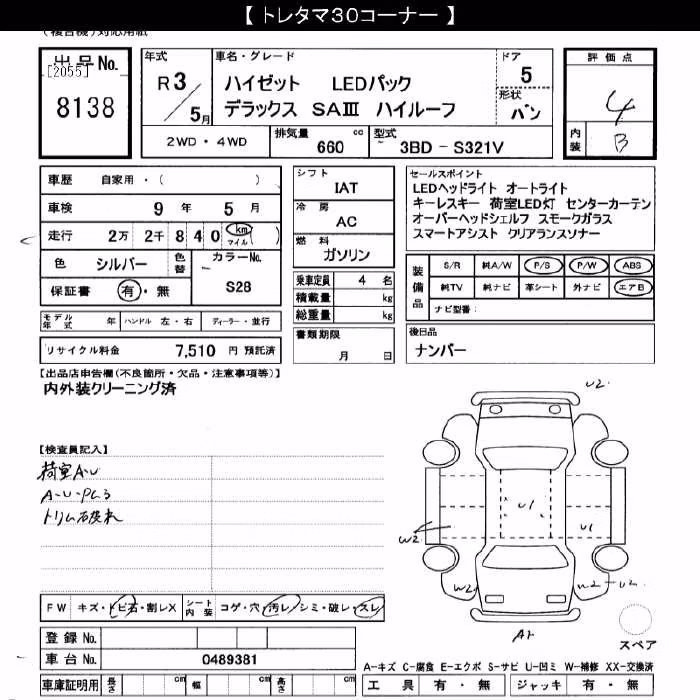 【 トレタマ30コーナー 】
(複合機)対応用紙
出品No.
[2055]
8138
年式
R3/5月
車名・グレード
ハイゼット LEDパック
デラックス SAⅢ ハイルーフ
ドア
5
形状
バン
2WD・4WD
排気量 660 cc
型式 3BD - S321V
評価点
4
内装 B
車歴 自家用・( )
車検 9 年 5 月
走行 2万 2千 8 4 0 km マイル ( )
色 シルバー 色替 カラーNo. S28
保証書 有・無
モデル年式 年 ハンドル 左・右 ディーラー・並行
リサイクル料金 7,510 円 預託済
シフト
IAT
冷房
AC
燃料
ガソリン
乗車定員 4 名
積載量 kg
総重量 kg
書類期限
月 日
セールスポイント
LEDヘッドライト オートライト
キーレスキー 荷室LED灯 センターカーテン
オーバーヘッドシェルフ スモークガラス
スマートアシスト クリアランスソナー
装備品 S/R 純A/W P/S P/W ABS
純TV 純ナビ 革シート 外ナビ エアB
ナビ型番:
後日品
ナンバー
【出品店申告欄(不良箇所・欠品・注意事項等)】
内外装クリーニング済
【検査員記入】
荷室A-U
A-U-PL3
トリム石破れ
U2.
U1
U1
W2
W2
W2-U2
A1
スペア
FW キズ・トビ石・割レX シート内装 コゲ・穴・汚レ・シミ・破レ・スレ
登録No.
車台No. 0489381
車庫証明用 長さ cm 幅 cm 高さ cm
A-キズ C-腐食 E-エクボ S-サビ U-凹ミ W-補修 XX-交換済
工具 有・無 ジャッキ 有・無